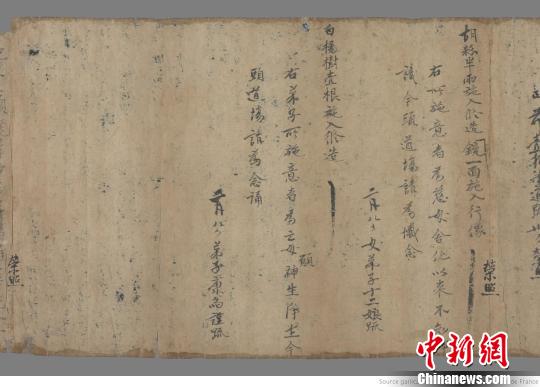 榮照
胡粉半兩施入修造鏡一面施入行像
右所施意者為慈母舍化以來不知
今頭道場請為懺念
二月八日女弟子十二娘疏
白楊樹壹根施入修造
右弟子所施意者為亡母願神生淨土今
頭道場請為念誦
月八日弟子 謹疏
榮照
中新网
Chinanews.com
Source gallica
de France